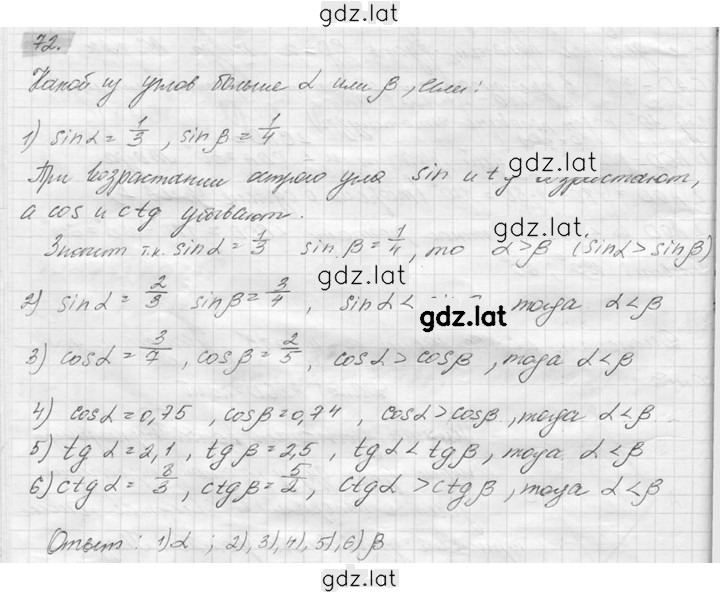 gdz.lat
72.
Какой из углов больше α или β, если:
1) sinα = 1/3 , sinβ = 1/4
gdz.lat
При возрастании острого угла sin и tg возрастают,
а cos и ctg убывают.
Значит т.к. sinα = 1/3 sinβ = 1/4, то α>β (sinα > sinβ)
gdz.lat
2) sinα = 2/3 sinβ = 3/4 , sinα < тогда α<β
gdz.lat
3) cosα = 3/7 , cosβ = 2/5 , cosα > cosβ , тогда α<β
4) cosα = 0,75 , cosβ = 0,74 , cosα > cosβ , тогда α<β
5) tgα = 2,1 , tgβ = 2,5 , tgα < tgβ , тогда α<β
6) ctgα = 8/3 , ctgβ = 5/2 , ctgα > ctgβ , тогда α<β
Ответ : 1) α ; 2), 3), 4), 5), 6) β
gdz.lat